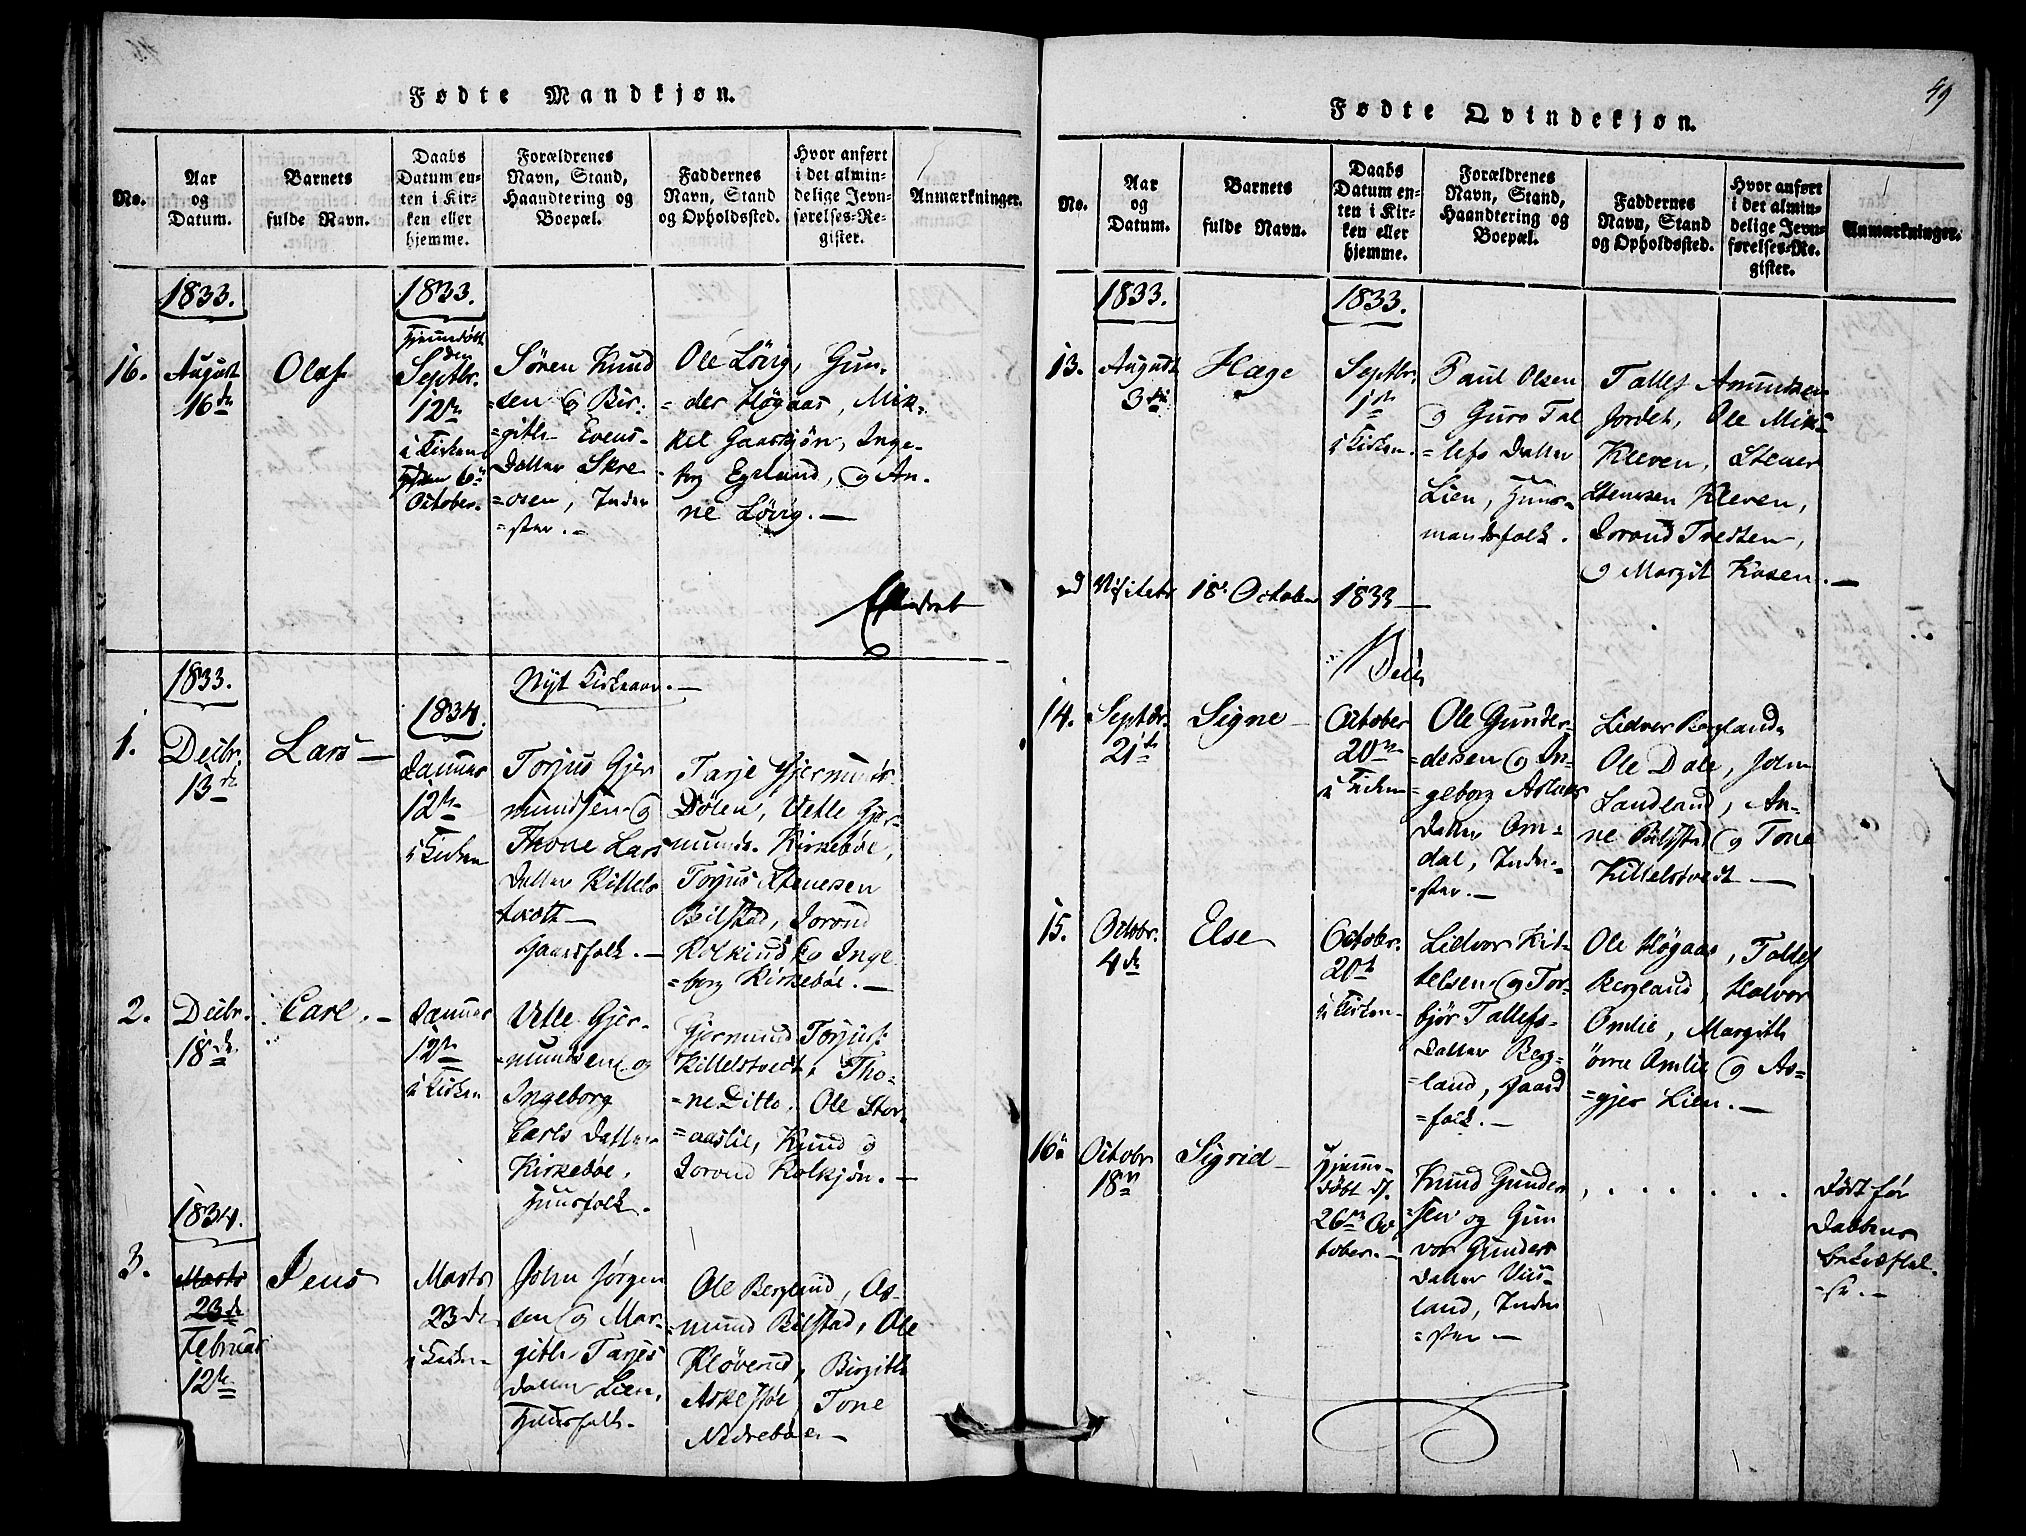 Fødte Mandkjøn.
No.
Aar
og
Datum.
Barnets
fulde Navn.
Daabs
Datum en-
ten i Kir-
ken eller
hjemme.
Forældrenes
Navn, Stand,
Haandtering og
Boepæl.
Faddernes
Navn, Stand
og Opholdssted.
Hvor anført
i det almin-
delige Jevn-
førelses-Re-
gister.
Anmærkninger.
1833.
16.
August
16de
Olaf
1833.
Hjemmdøbt
den
Septbr.
12te
i Kirken
den 6te
October.
Søren Knud
sen og Bir-
=gith Evens-
Datter Skre
=osen, Inder
=ster.-
Ole Løvig, Gun-
=der Høgaas, Mik-
kel Gaaskjøn, Inge-
borg Egelund, og An-
ne Løvig.—
1833.
Nyt Kirkeaar.—
1.
Decbr.
13de
Lars—
1834.
Januar
12te
i Kirken
Torjus Gjer
mundsen og
Thone Lars
Datter Kittels
tvedt—
Gaardfolk.—
Tarje Gjermunds.
Dølen, Vetle Gjer-
munds. Kirkebøe,
Torjus Stenersen
Bilstad, Jorond
Kolkind og Inge
=borg Kirkebøe.—
2.
Decbr.
18de
Carl.—
Januar
12te
i Kirken
Vetle Gjer-
=mundsen og
Ingeborg
Carls Datter
Kirkebøe,
Huusfolk.
Gjermund Torjus:
Kittelstvedt, Tho-
=ne Ditto. Ole Stor-
=aaslie, Knud og
Jorond Kolkjøn.—
1834.
3.
Marts
23de
Februar
12te
Jens
Marts
23de
i Kirken
John Jørgen
sen og Mar-
gith Tarjes
Datter Lien,
Huusfolk.
Ole Berglund, As-
=mund Bilstad, Ole
Kløverud, Birgith
Askelstøe, Tone
Nedrebøe.—
49
Fødte Qvindekjøn.
No.
Aar
og
Datum.
Barnets
fulde Navn.
Daabs
Datum en-
ten i Kir-
ken eller
hjemme.
Forældrenes
Navn, Stand,
Haandtering og
Boepæl.
Faddernes
Navn, Stand
og Opholdssted.
Hvor anført
i det almin-
delige Jevn-
førelses-Re-
gister.
Anmærkninger.
1833.
1833.
13.
August
3die
Hæge
Septbr.
1ste
i Kirken.
Paul Olsen
og Guro Tal
=lefs Datter
Lien, Huus-
mandsfolk.
Tallef Amundsen
Jordet, Ole Mik:
Kleven, Stener
Stenersen Kleven,
Jorond Tredsen,
og Margit Kasen.—
Visitats 18. October 1833—
14.
Septbr.
21de
Signe—
October
20de
i Kirken
Ole Gunder-
=dersen og In-
=geborg Aslaks
Datter Om-
dal, Inder-
=ster.—
Lidvor Bergland,
Ole Dale, John
Landland, An-
ne Bilstad og Tone
Kittelstvedt—
15.
Octobr.
4de
Else
Octobr.
20de
i Kirken.
Lidvor Kit-
telsen og Tor-
bjør Tallefs-
Datter Berg-
=land, Gaard
=folk.—
Ole Høgaas, Tallef
Bergland, Halvor
Omlie, Margith
øvre Omlie og As-
=gjer Lien.—
16.
Octobr
18de
Sigrid—
Hjemme-
døbt d.
26de Oc
tober.—
Knud Gunder
=sen og Gun
vor Gunders
Datter Vies-
land, Inder
=ster—
Død før
Daabens
Bekræftel-
=se.—